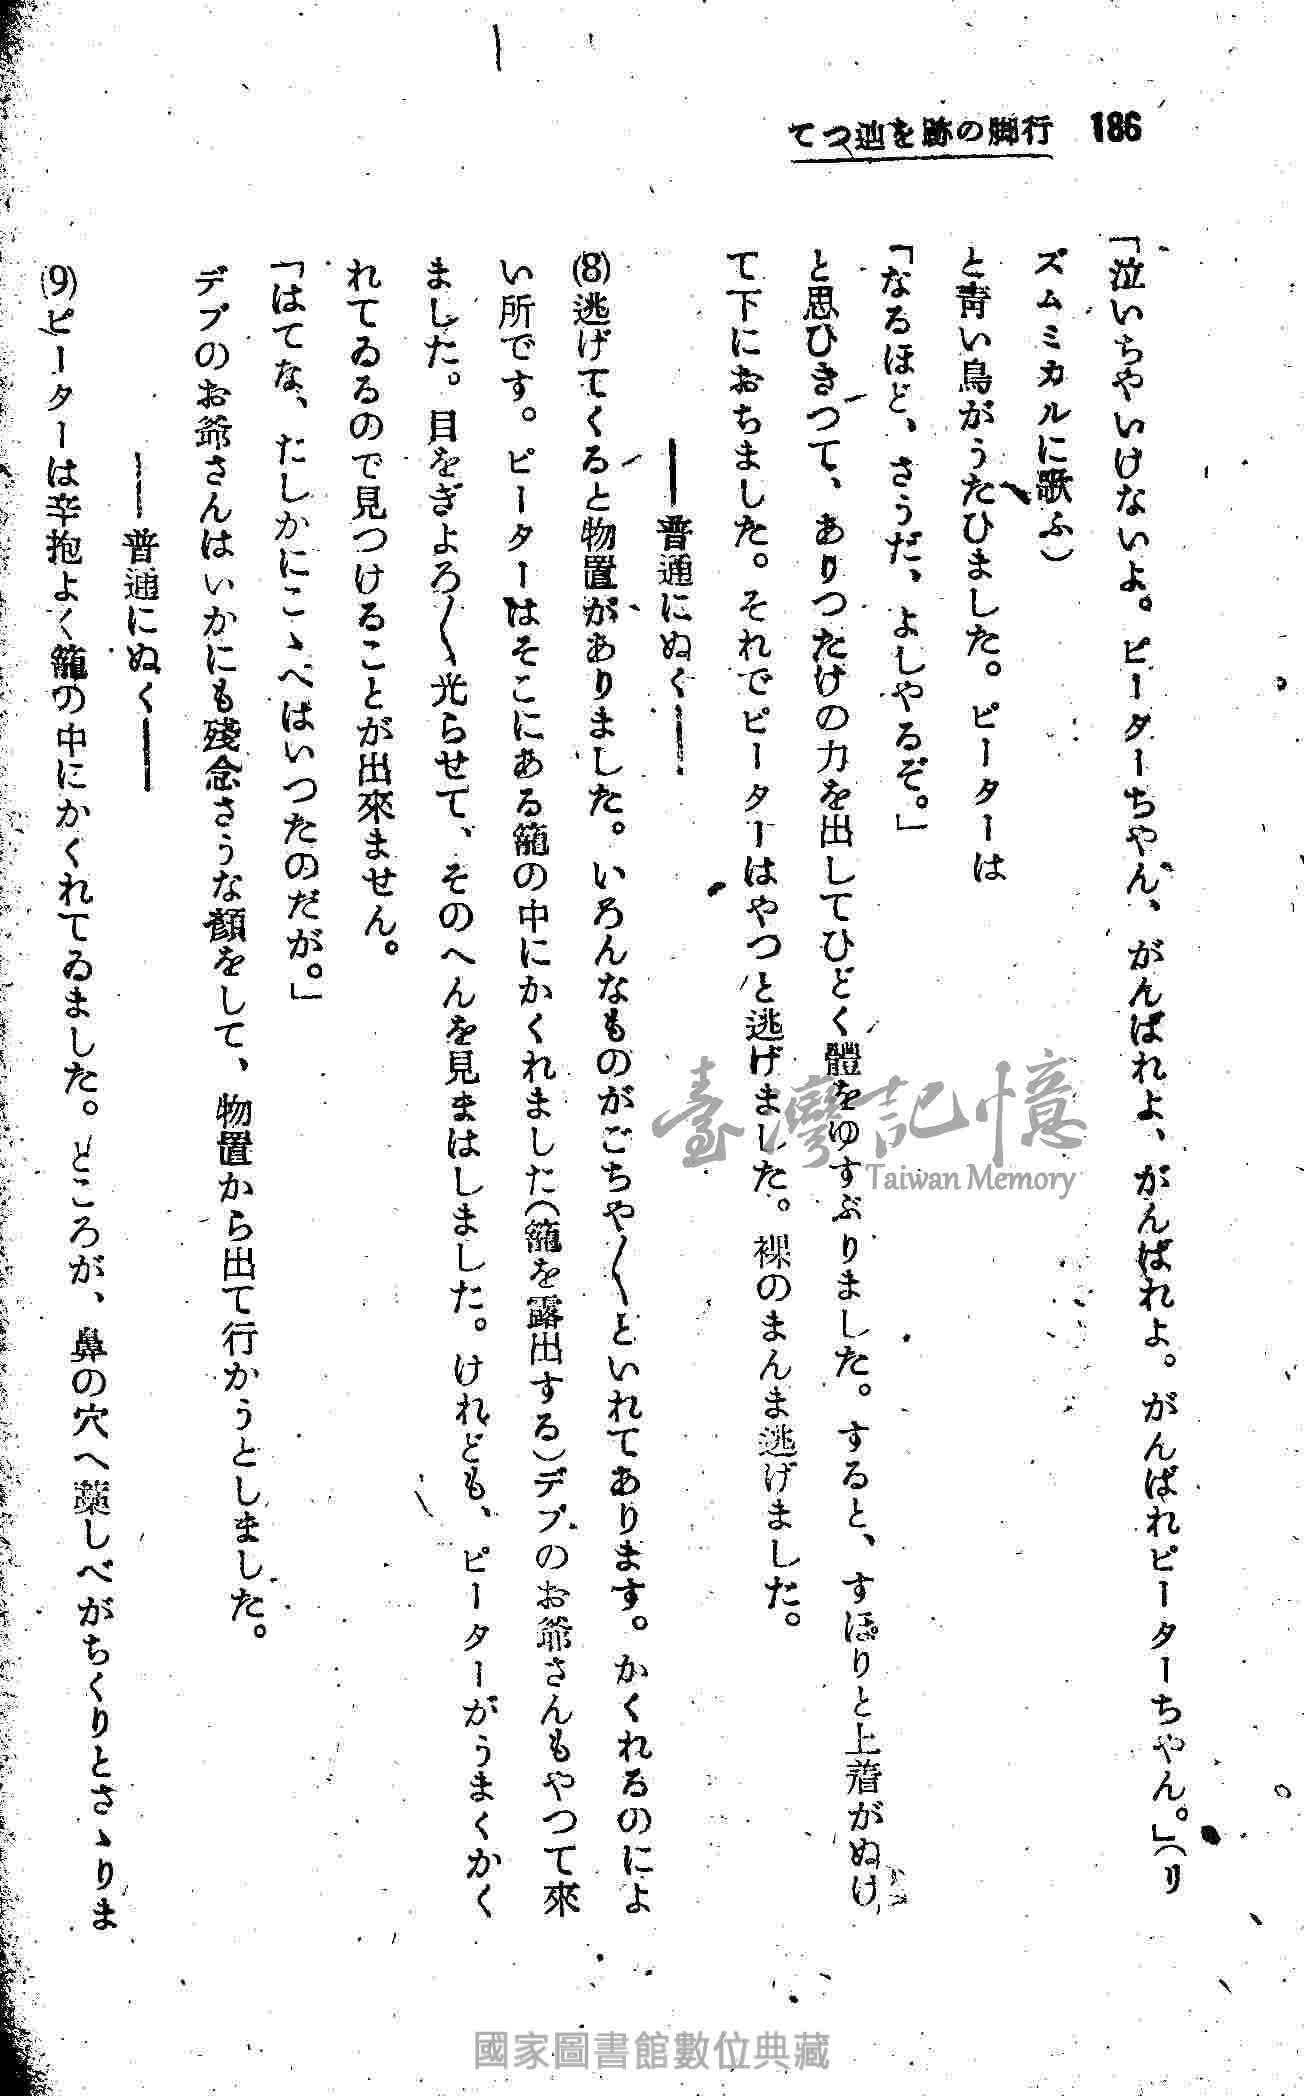 186 行脚の跡を辿つて
「泣いちやいけないよ。ピーターちやん、がんばれよ、がんばれよ。がんばれピーターちやん。」(リ
ズムミカルに歌ふ)
と青い鳥がうたひました。ピーターは
「なるほど、さうだ、よしやるぞ。」
と思ひきつて、ありつたけの力を出してひどく體をゆすぶりました。すると、すぽりと上着がぬけ
て下におちました。それでピーターはやつと逃げました。裸のまんま逃げました。
――普通にぬく――
(8)逃げてくると物置がありました。いろんなものがごちや〳〵といれてあります。かくれるのによ
い所です。ピーターはそこにある籠の中にかくれました(籠を露出する)デブのお爺さんもやつて來
ました。目をぎよろ〳〵光らせて、そのへんを見まはしました。けれども、ピーターがうまくかく
れてゐるので見つけることが出來ません。
「はてな、たしかにこゝへはいつたのだが。」
デブのお爺さんはいかにも殘念さうな顏をして、物置から出て行かうとしました。
――普通にぬく――
(9)ピーターは辛抱よく籠の中にかくれてゐました。ところが、鼻の穴へ藁しべがちくりとさゝりま
臺灣記憶
Taiwan Memory
國家圖書館數位典藏